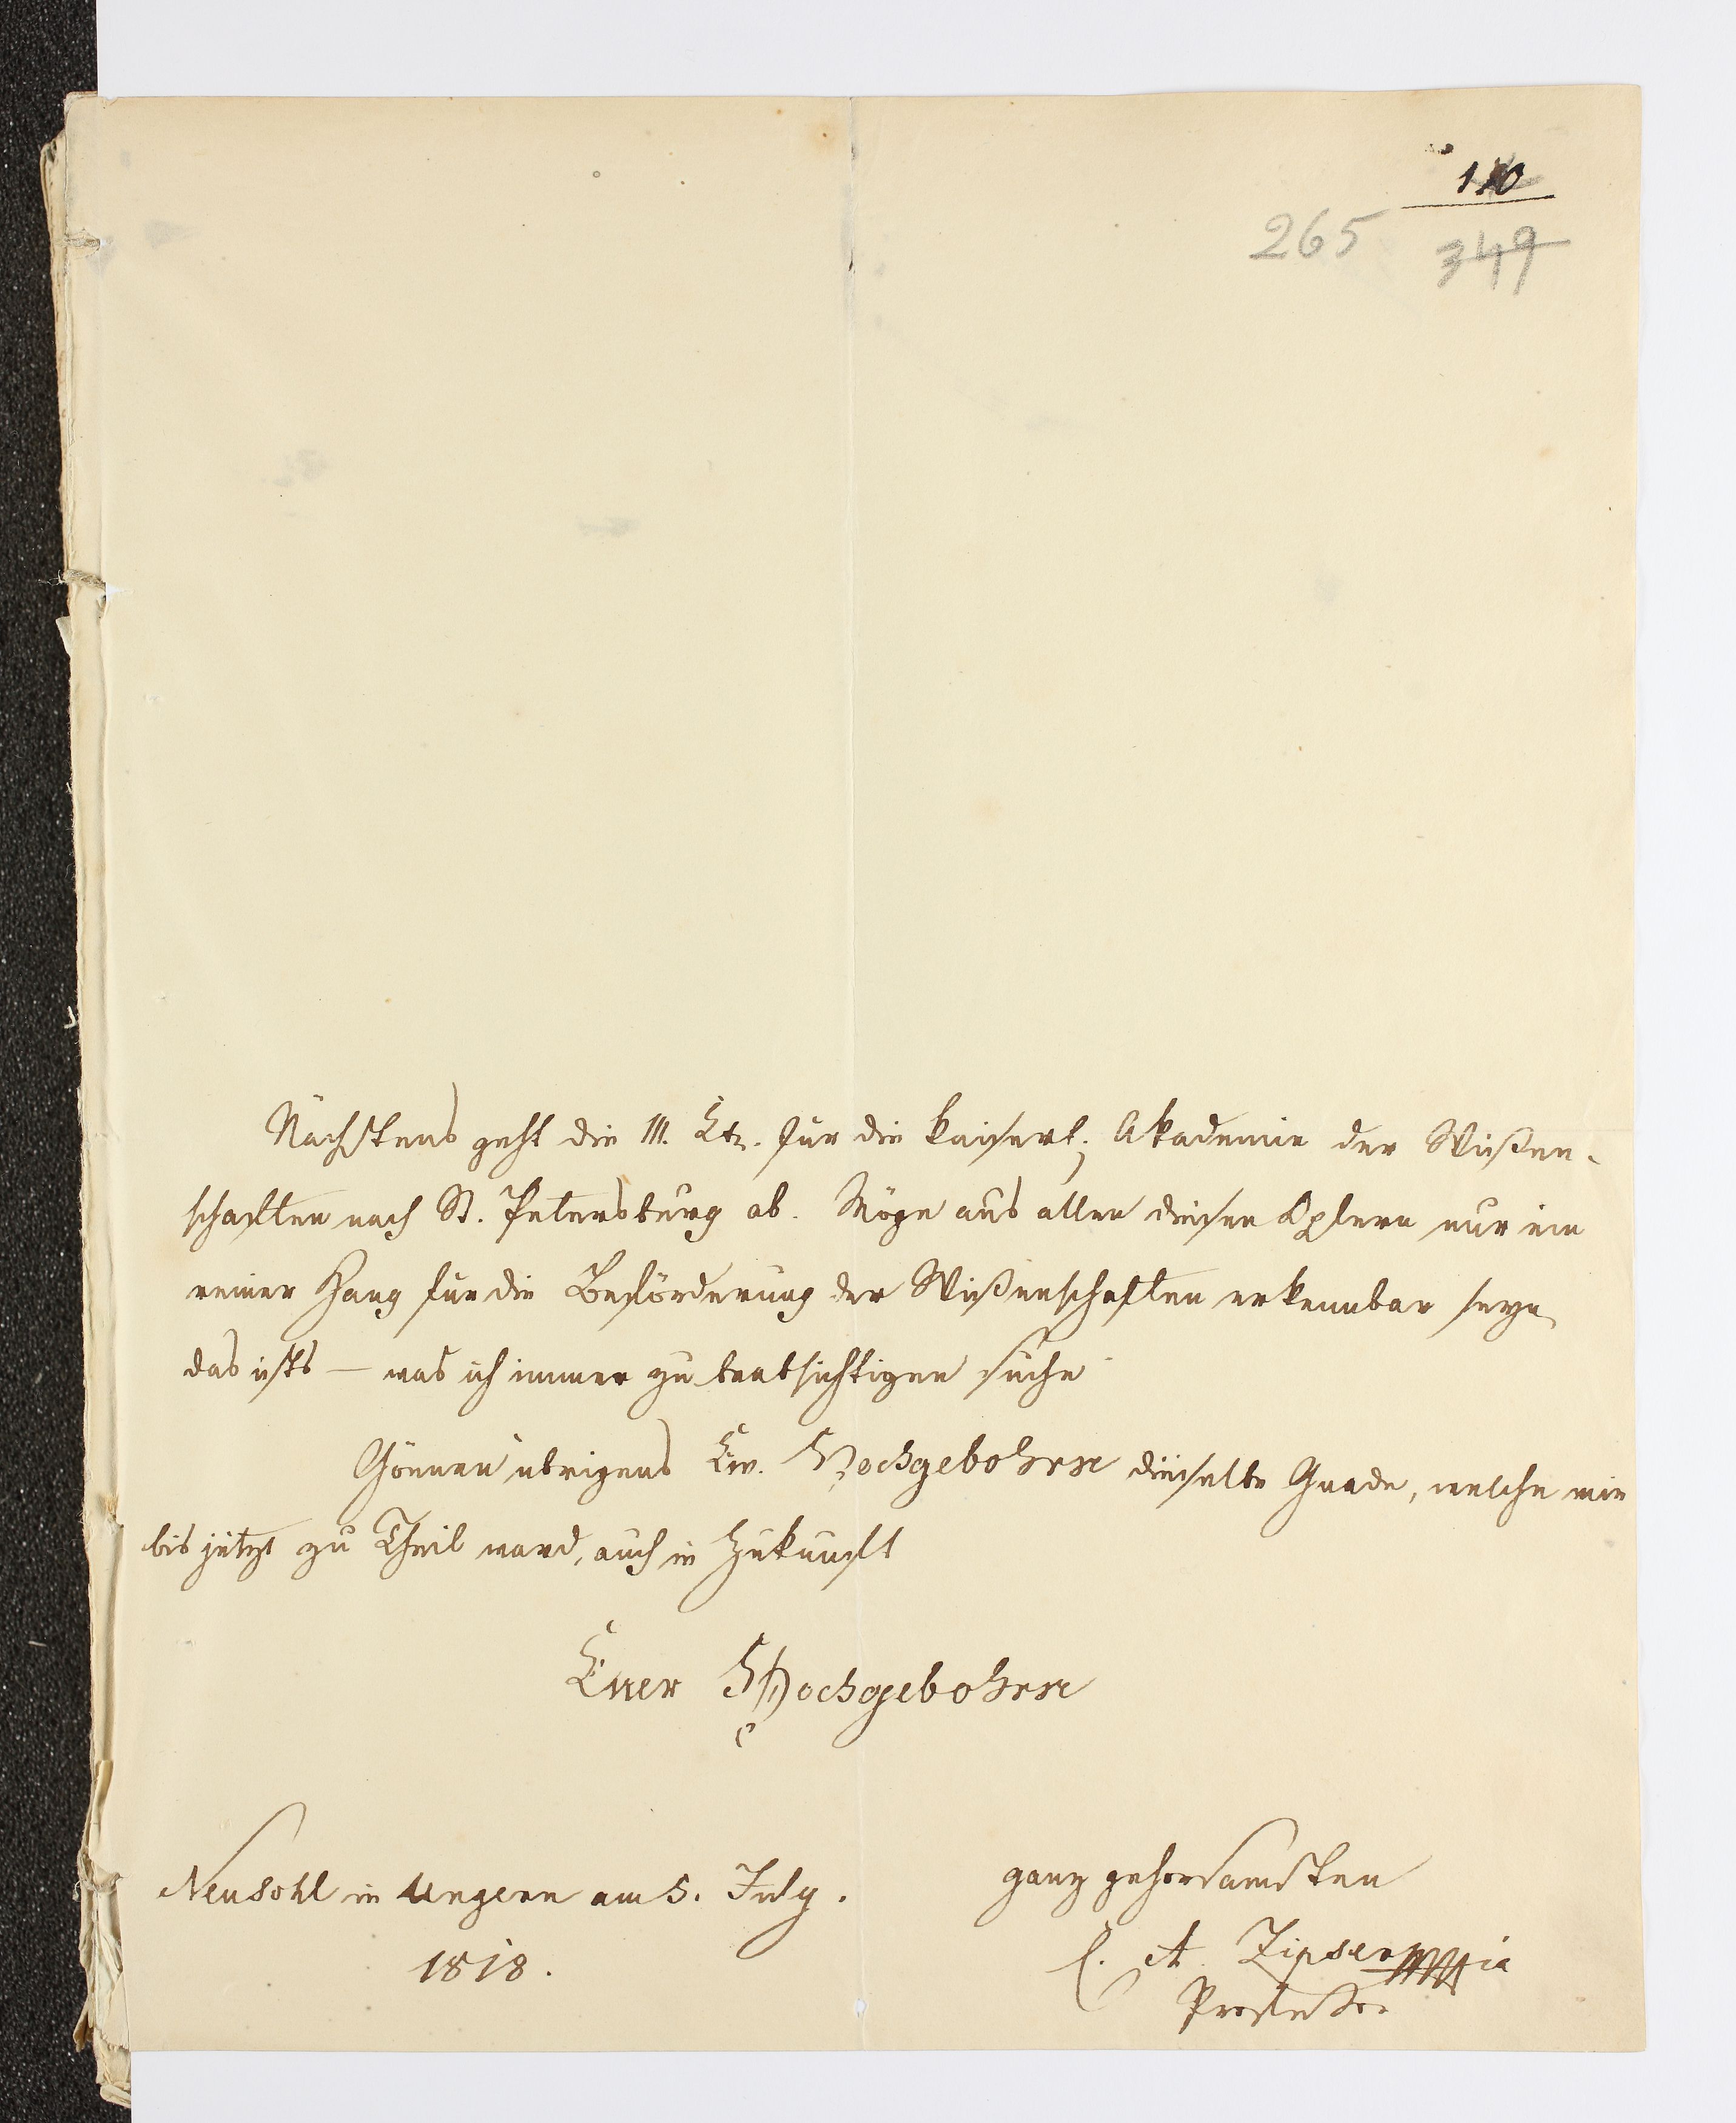 110
265 349
Nächstens geht die III. Ctr. für die kaiserl. Akademie der Wißen-
schaften nach St. Petersburg ab. Möge aus allen diesen Opfern nur ein
reiner Hang für die Beförderung der Wißenschaften erkennbar seyn
das ists — was ich immer zu beabsichtigen suche
Gönnen übrigens Ew. Hochgebohren dieselbe Gnade, welche mir
bis jetzt zu Theil ward, auch in Zukunft
Euer Hochgebohren
Neusohl in Ungern am 5. July.
1818.
ganz gehorsamsten
C. A. Zipser
Professor